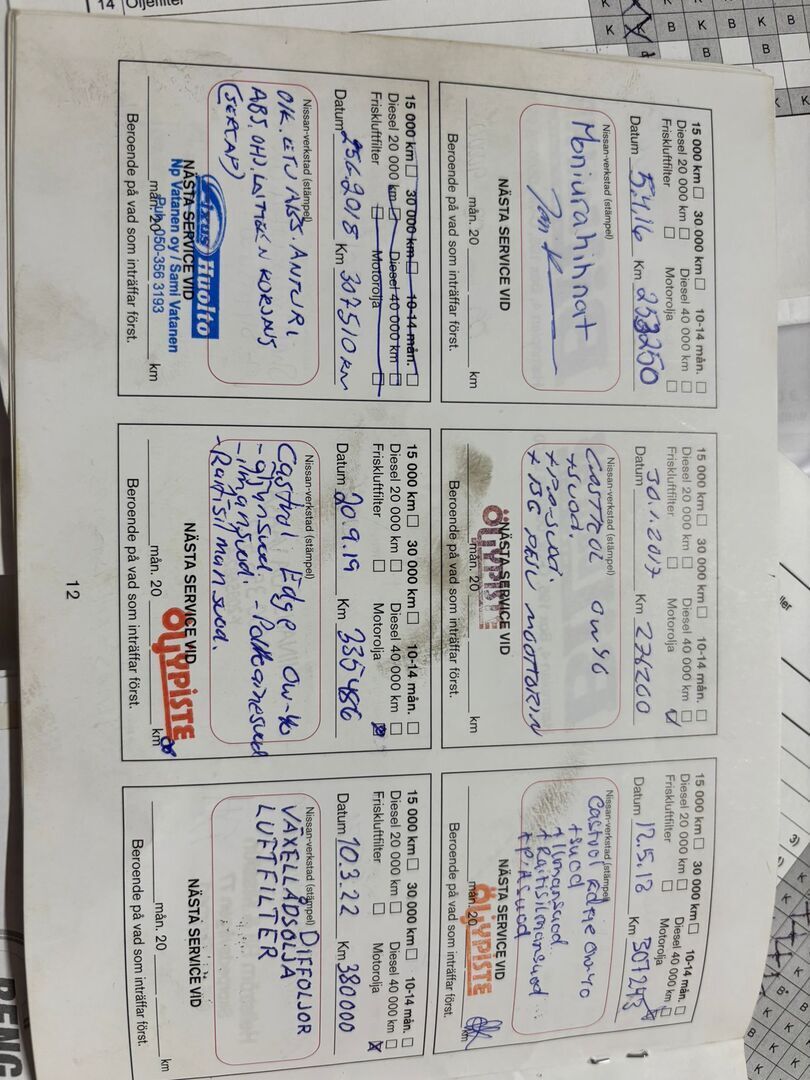 14 Oljefilter
15 000 km 30 000 km 10-14 mån.
Diesel 20 000 km Diesel 40 000 km
Friskluftfilter Motorolja
Datum 5.4.16 Km 253250
Nissan-verkstad (stämpel)
Moniurahihnat
NÄSTA SERVICE VID
mån. 20 km
Beroende på vad som inträffar först.
15 000 km 30 000 km 10-14 mån.
Diesel 20 000 km Diesel 40 000 km
Friskluftfilter Motorolja
Datum 30.1.2017 Km 276200
Nissan-verkstad (stämpel)
CASTROL 0W40
+suod.
+ PA suod.
+ BG PESU MOOTTORIN
NÄSTA SERVICE VID
ÖLJYPISTE
mån. 20
Beroende på vad som inträffar först.
15 000 km 30 000 km 10-14 mån.
Diesel 20 000 km Diesel 40 000 km
Friskluftfilter Motorolja
Datum 12.5.18 Km 307245
Nissan-verkstad (stämpel)
Castrol 0W-40
+suod
+Ilmansuod.
+Raitisilmansuod
NÄSTA SERVICE VID
ÖLJYPISTE
mån. 20 km
Beroende på vad som inträffar först.
15 000 km 30 000 km 10-14 mån.
Diesel 20 000 km Diesel 40 000 km
Friskluftfilter Motorolja
Datum 25.6.2018 Km 307510 km
Nissan-verkstad (stämpel)
OIK. ETU ABS. ANTURI
ABS.OHJ.LAITTEEN KORJAUS
Fixus Huolto
NÄSTA SERVICE VID
Np Vatanen oy / Sami Vatanen
Puh. 050-356 3193
mån. 20 km
Beroende på vad som inträffar först.
15 000 km 30 000 km 10-14 mån.
Diesel 20 000 km Diesel 40 000 km
Friskluftfilter Motorolja
Datum 20.9.19 Km 335486
Nissan-verkstad (stämpel)
Castrol Edge 0W-40
-öljynsuod. -Polttoainesuod
-ilmansuod.
-Raitisilmansuod.
NÄSTA SERVICE VID
ÖLJYPISTE
mån. 20 km
Beroende på vad som inträffar först.
15 000 km 30 000 km 10-14 mån.
Diesel 20 000 km Diesel 40 000 km
Friskluftfilter Motorolja
Datum 10.3.22 Km 380000
Nissan-verkstad (stämpel) DIFFOLJOR
VÄXELLÅDSOLJA
LUFTFILTER
NÄSTA SERVICE VID
mån. 20 km
Beroende på vad som inträffar först.
12